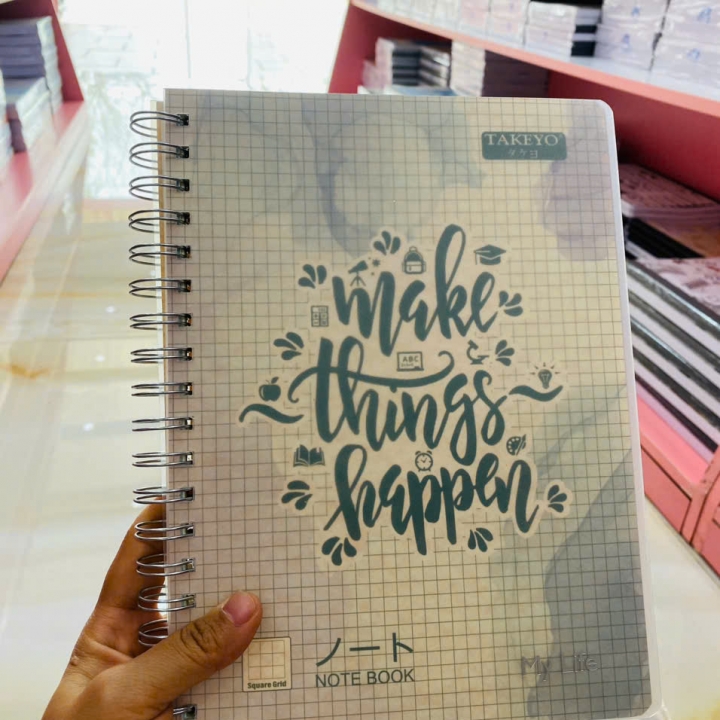 TAKEYO
タケヨ
make
ABC
things
happen
ノート
NOTE BOOK
Square Grid
My Life